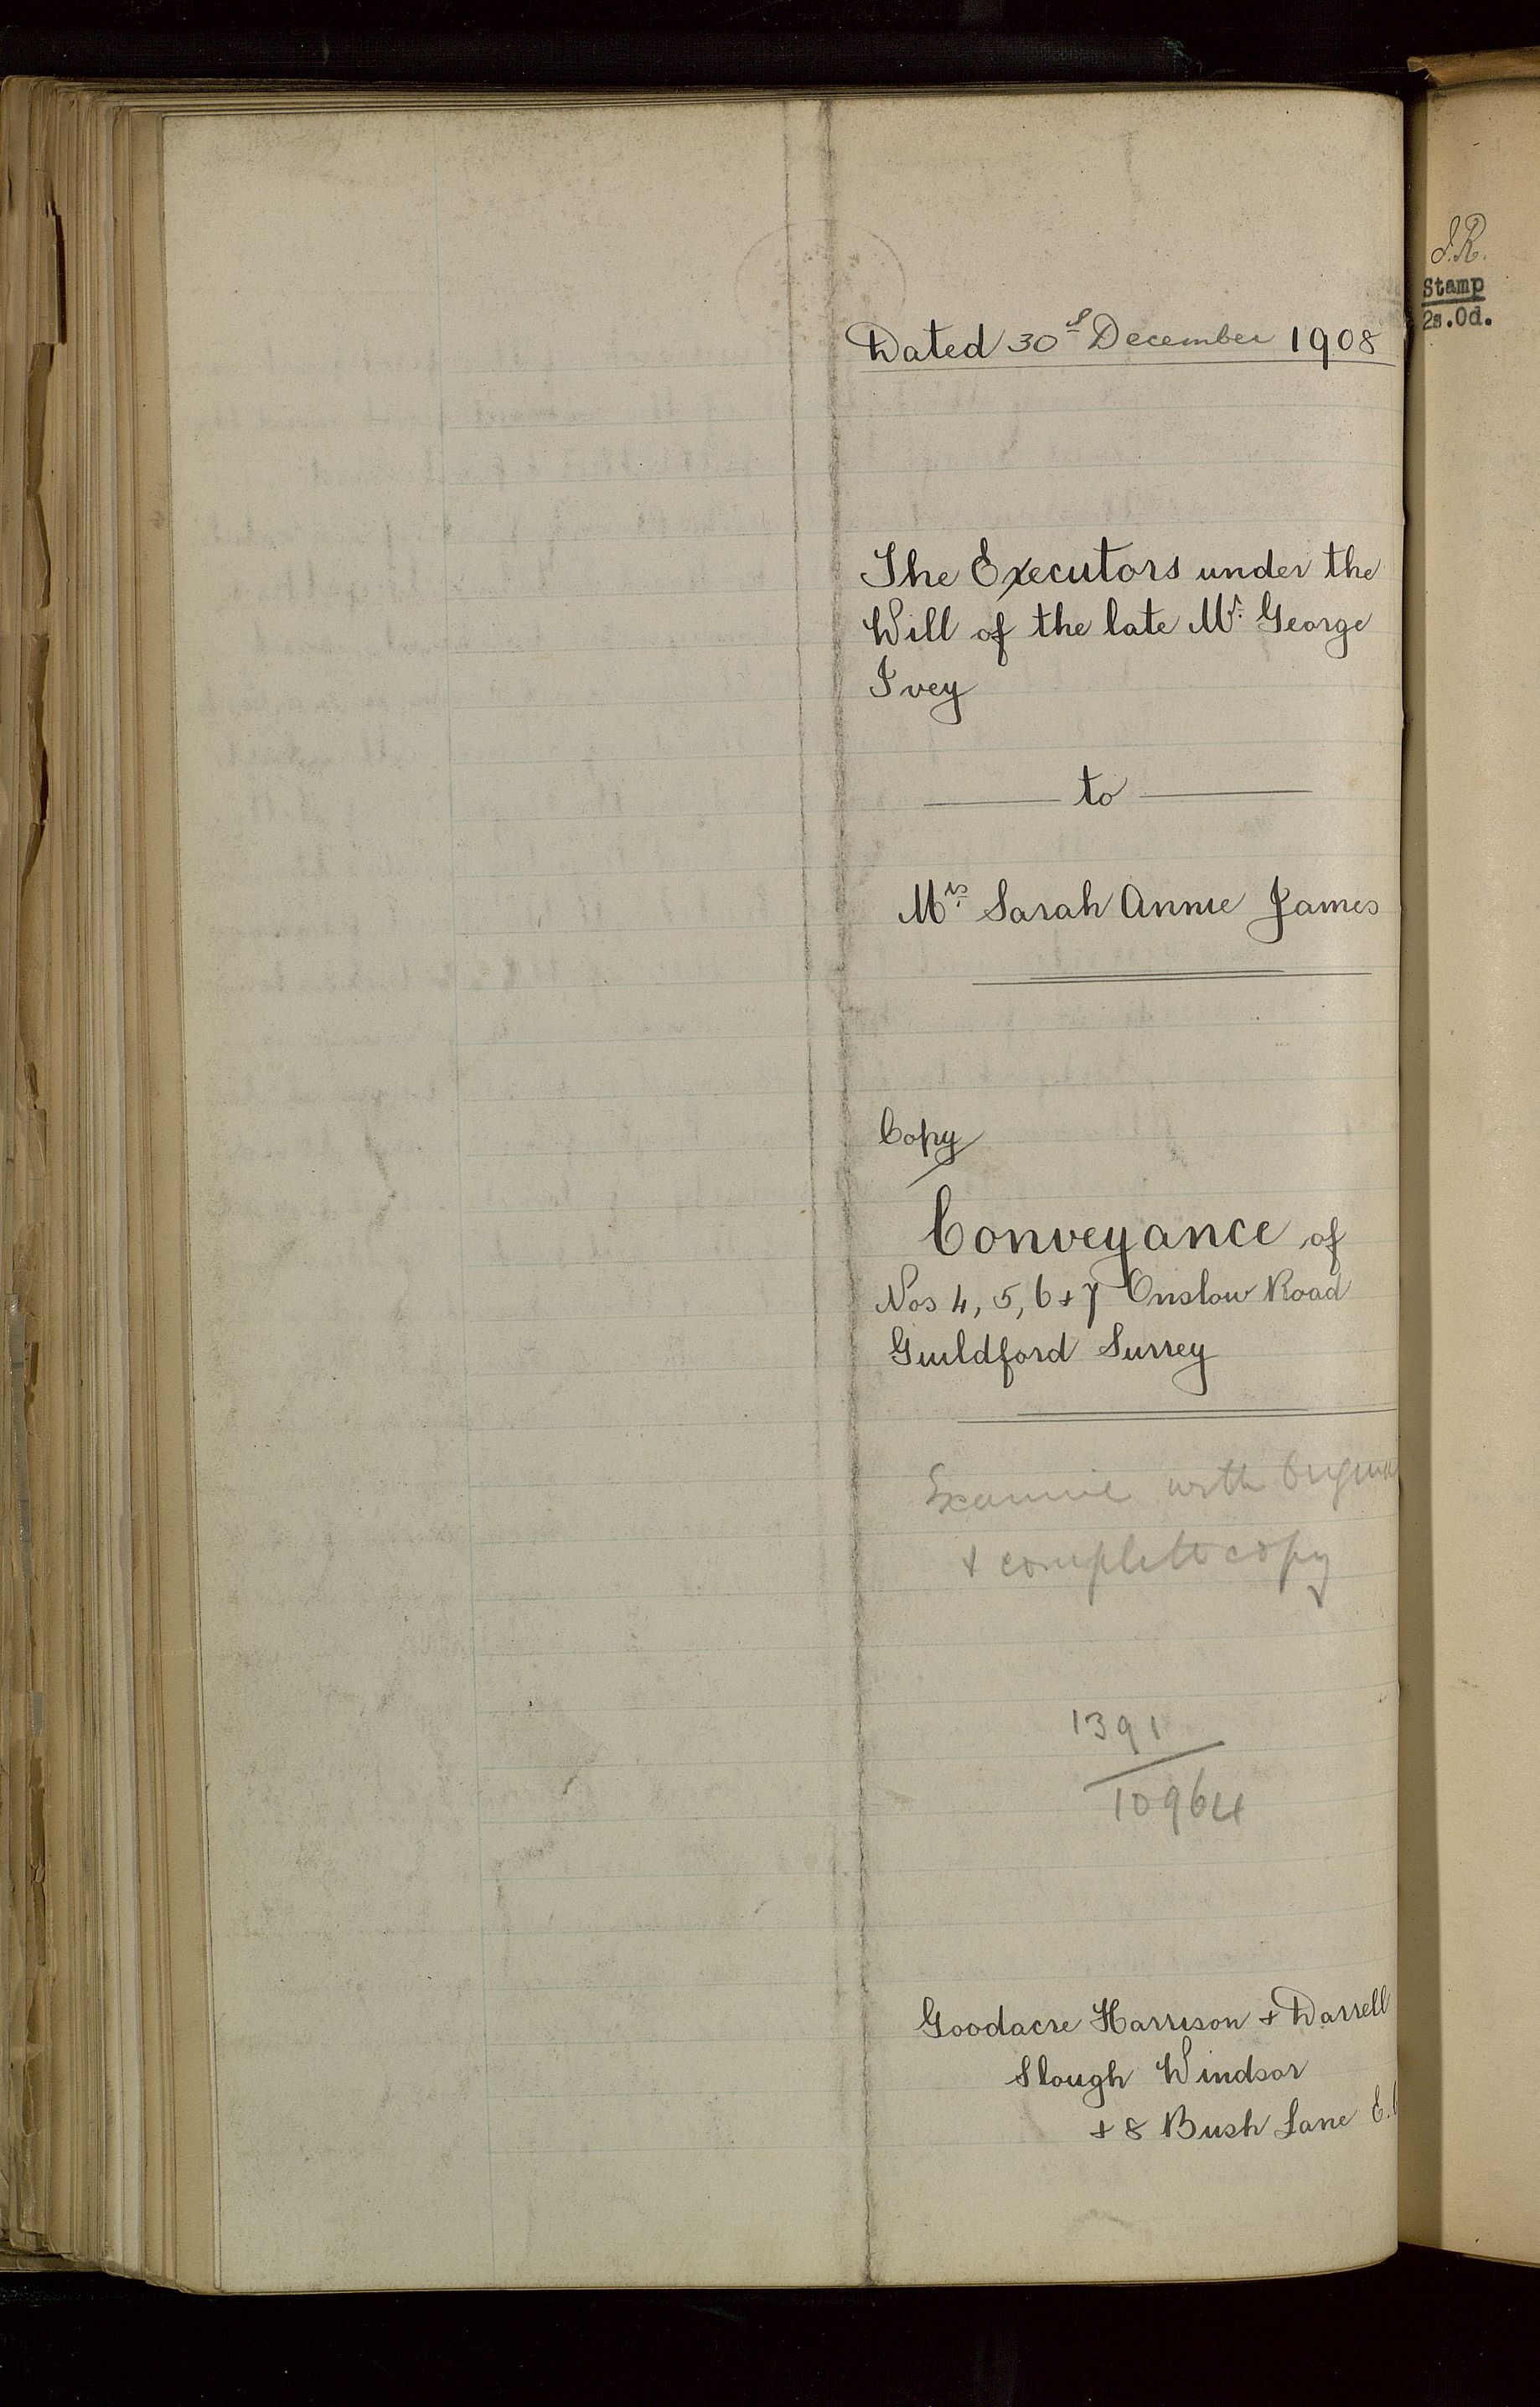 Dated 30th December 1908
The Executors under the
Will of the late Mr. George
Ivey
to
Mrs. Sarah Annie James
Copy
Conveyance of
Nos 4, 5, 6 + 7 Onslow Road
Guildford Surrey
Examine with
+ complete copy
1391
10964
Goodacre Harrison + Darrell
Slough Windsor
+ 8 Bush Lane E.
I.R.
Stamp
2s.0d.